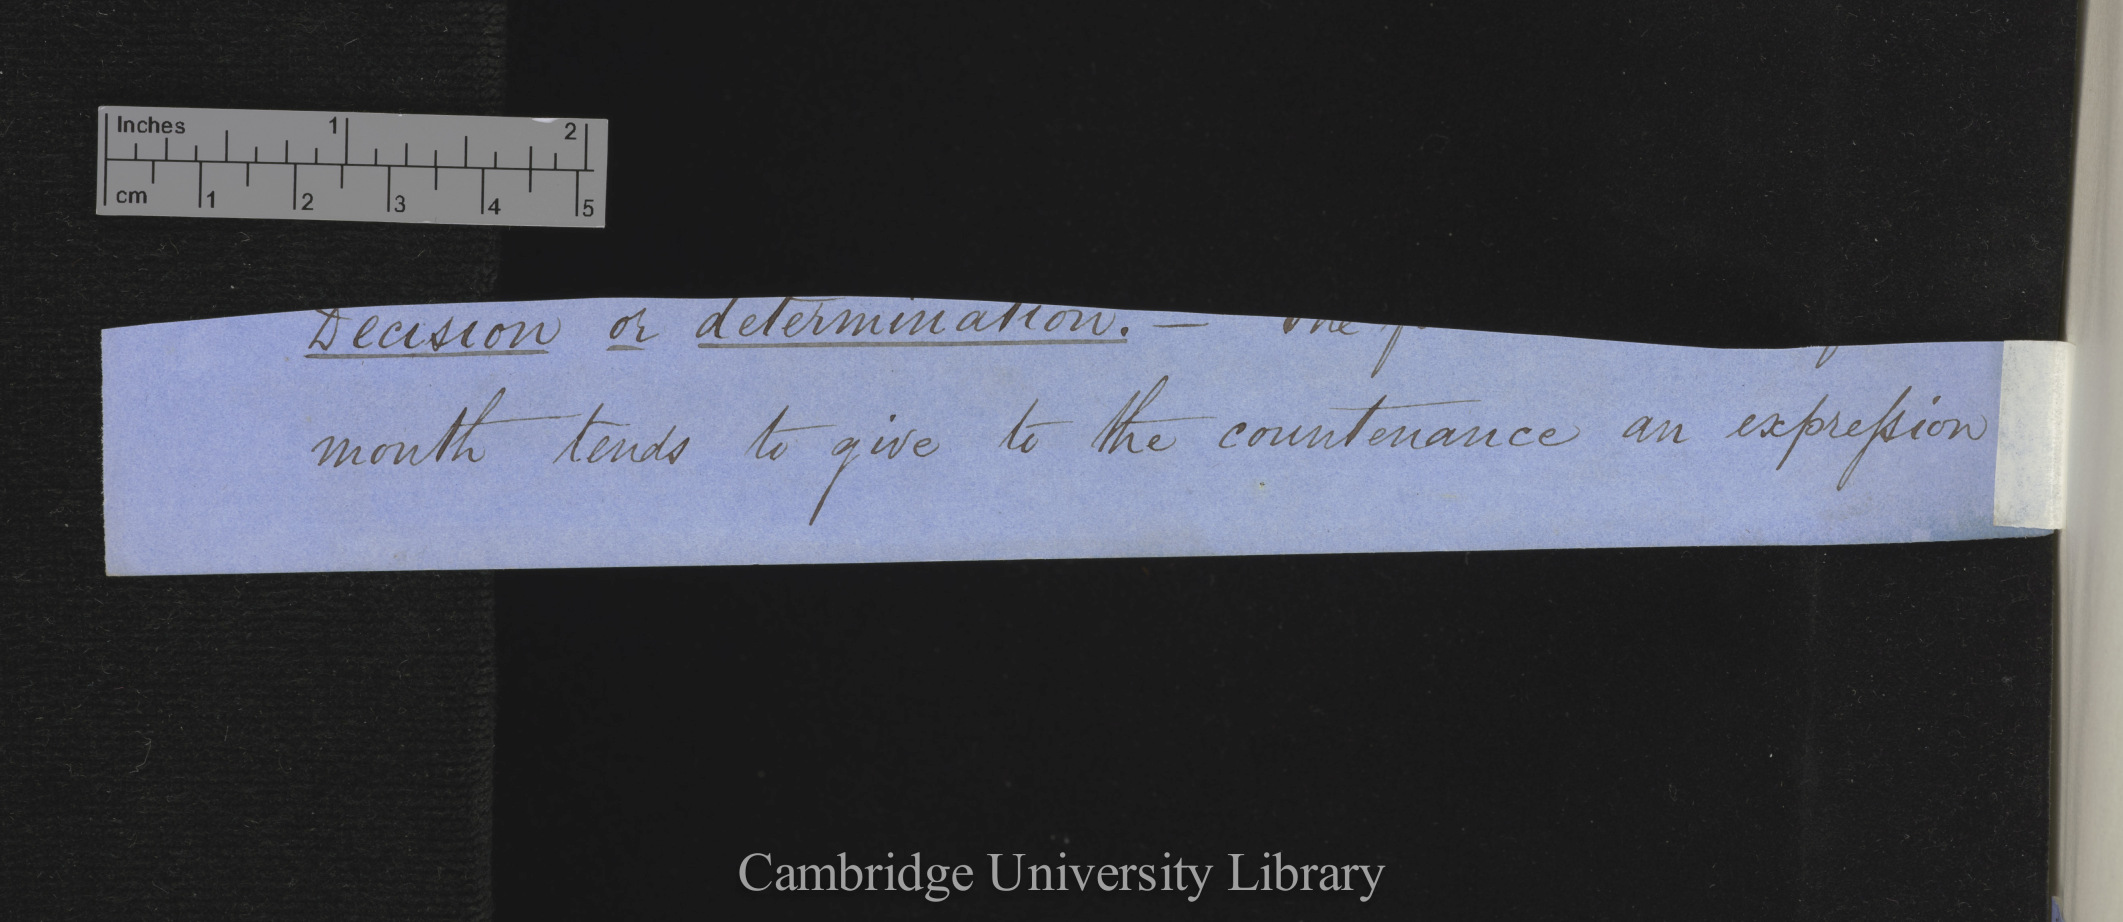 Inches 1 2
cm 1 2 3 4 5
Decision or determination. — The
mouth tends to give to the countenance an expreſsion
Cambridge University Library